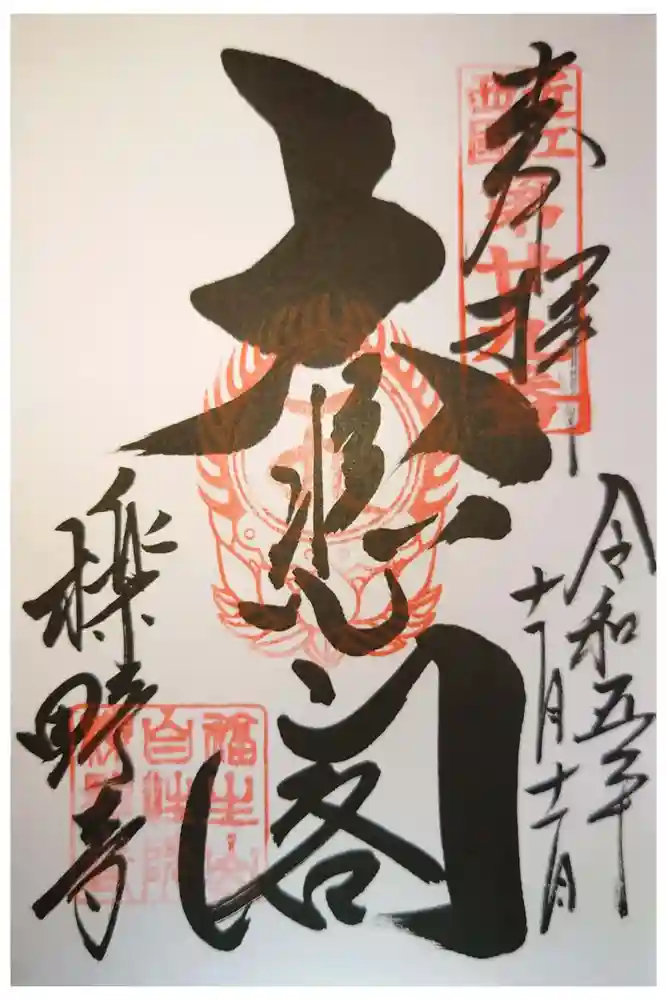 奉拝
近江
西國
第廿九番
令和五年
十一月十二日
大悲閣
櫟野寺
福生山
自性院